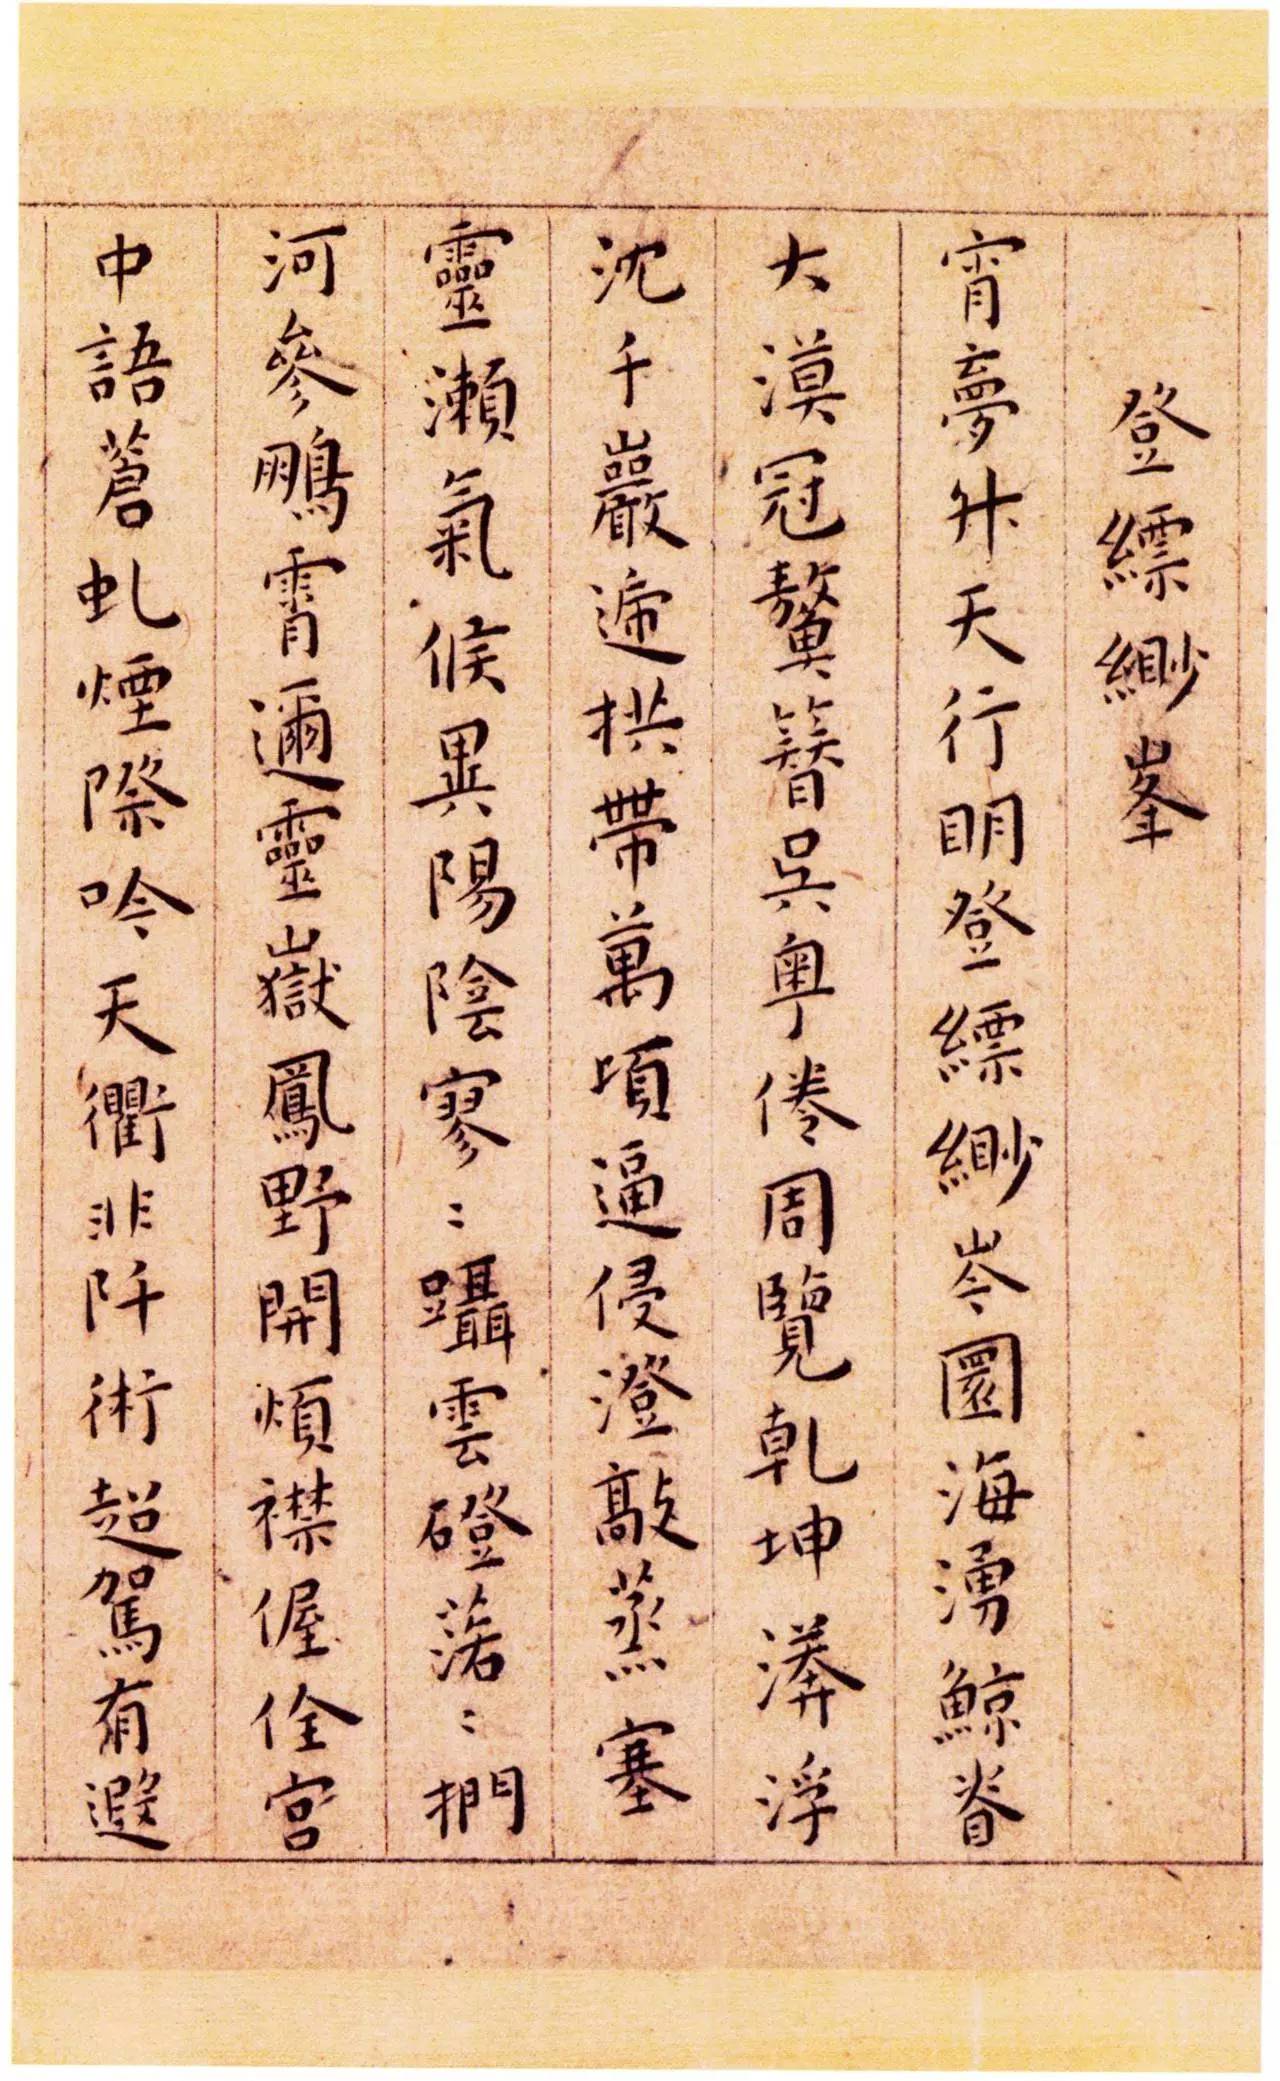 登縹緲峯
宵夢升天行明登縹緲岑圜海湧鯨脊
大漠冠鼇簪吳粵倦周覽乾坤漭浮
沈千巖遞拱帶萬頃逼侵澄歊蒸塞
靈瀨氣候異陽陰寥〻躡雲磴落〻捫
河參鵬霄邇靈嶽鳳野開煩襟偓佺宮
中語蒼虬煙際吟天衢非阡術超駕有遐